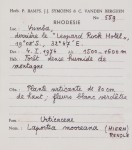 Prof. P. BAMPS, J.J. SYMOENS & C. VANDEN BERGHEN
RHODESIE
No 559
Vumba,
derrière le "Leopard Rock Hotel",
32°47'E.
4.I.1974 // 1500-1600 m
Forêt dense humide de
montagne
Plante urticante de 80 cm
de haut, fleurs blanc verdâtre
Urticaceae
Laportea mooreana (HIERN)
RENDLE